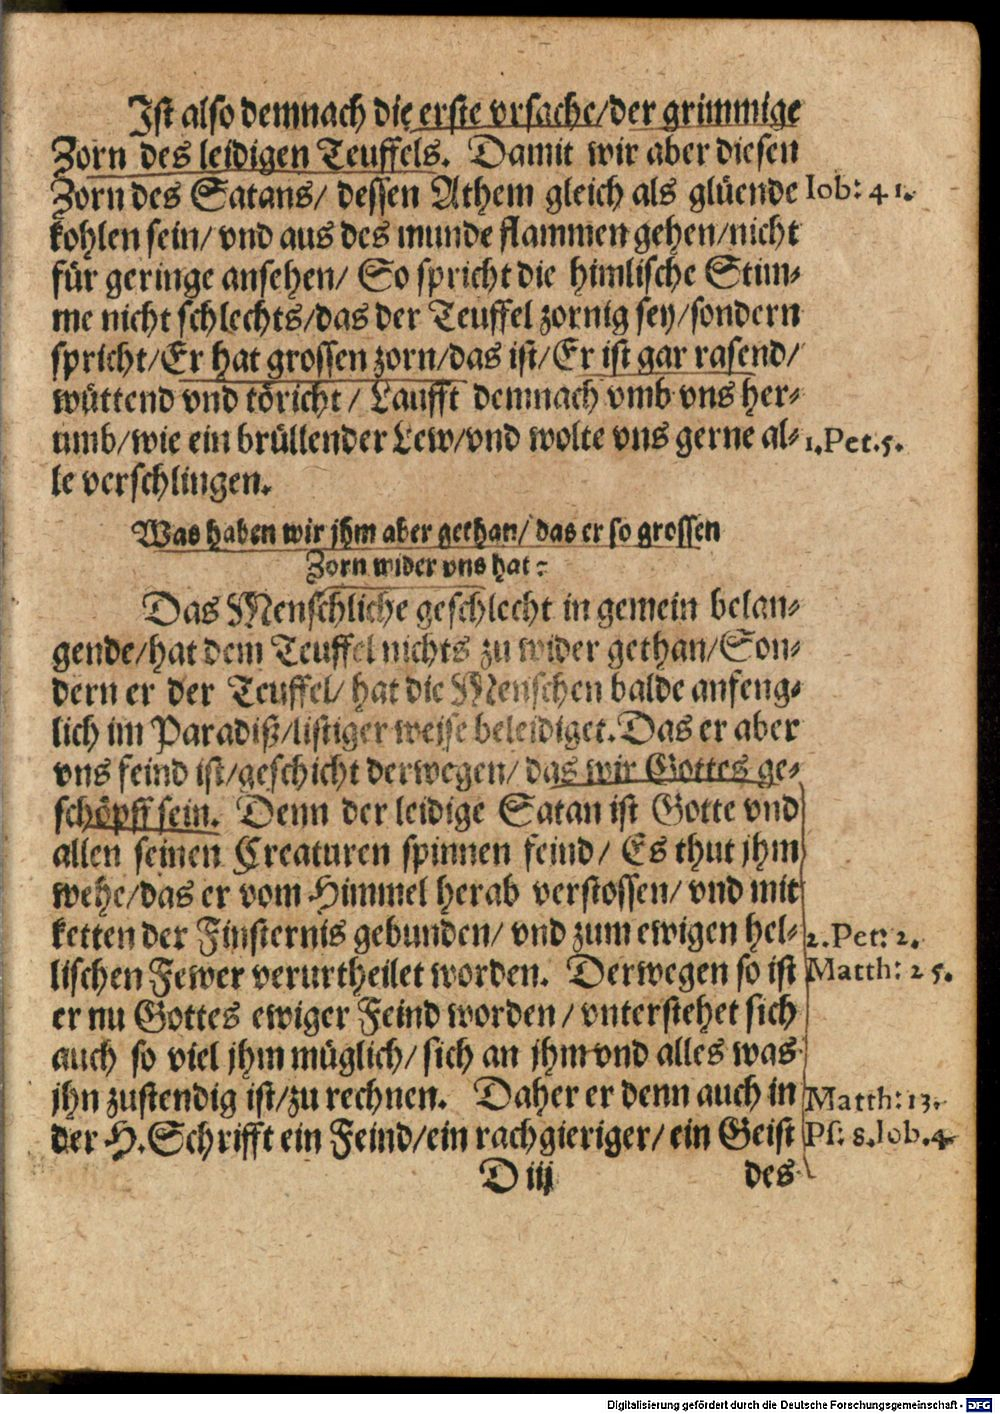 Ist also demnach die erste vrsache/der grimmige
Zorn des leidigen Teuffels. Damit wir aber diesen
Zorn des Satans/ dessen Athem gleich als glüende Iob: 41.
kohlen sein/ vnd aus des munde flammen gehen/nicht
für geringe ansehen/ So spricht die himlische Stim⸗
me nicht schlechts/das der Teuffel zornig sey/sondern
spricht/Er hat grossen zorn/das ist/Er ist gar rasend/
wüttend vnd töricht/ Laufft demnach vmb vns her⸗
umb/wie ein brüllender Lew/vnd wolte vns gerne al⸗ 1.Pet.5.
le verschlingen.
Was haben wir jhm aber gethan/ das er so grossen
Zorn wider vns hat?
Das Menschliche geschlecht in gemein belan⸗
gende/hat dem Teuffel nichts zu wider gethan/Son⸗
dern er der Teuffel/ hat die Menschen balde anfeng⸗
lich im Paradiß/listiger weise beleidiget. Das er aber
vns feind ist/geschicht derwegen/ das wir Gottes ge⸗
schöpff sein. Denn der leidige Satan ist Gotte vnd
allen seinen Creaturen spinnen feind/ Es thut jhm
wehe/das er vom Himmel herab verstossen/ vnd mit
ketten der Finsternis gebunden/ vnd zum ewigen hel⸗ 2.Pet: 2.
lischen Fewer verurtheilet worden. Derwegen so ist Matth: 25.
er nu Gottes ewiger Feind worden/ vnterstehet sich
auch so viel jhm müglich/ sich an jhm vnd alles was
jhn zustendig ist/zu rechnen. Daher er denn auch in Matth: 13.
der H. Schrifft ein Feind/ein rachgieriger/ ein Geist Ps: 8. Iob. 4.
D iij des
Digitalisierung gefördert durch die Deutsche Forschungsgemeinschaft - DFG